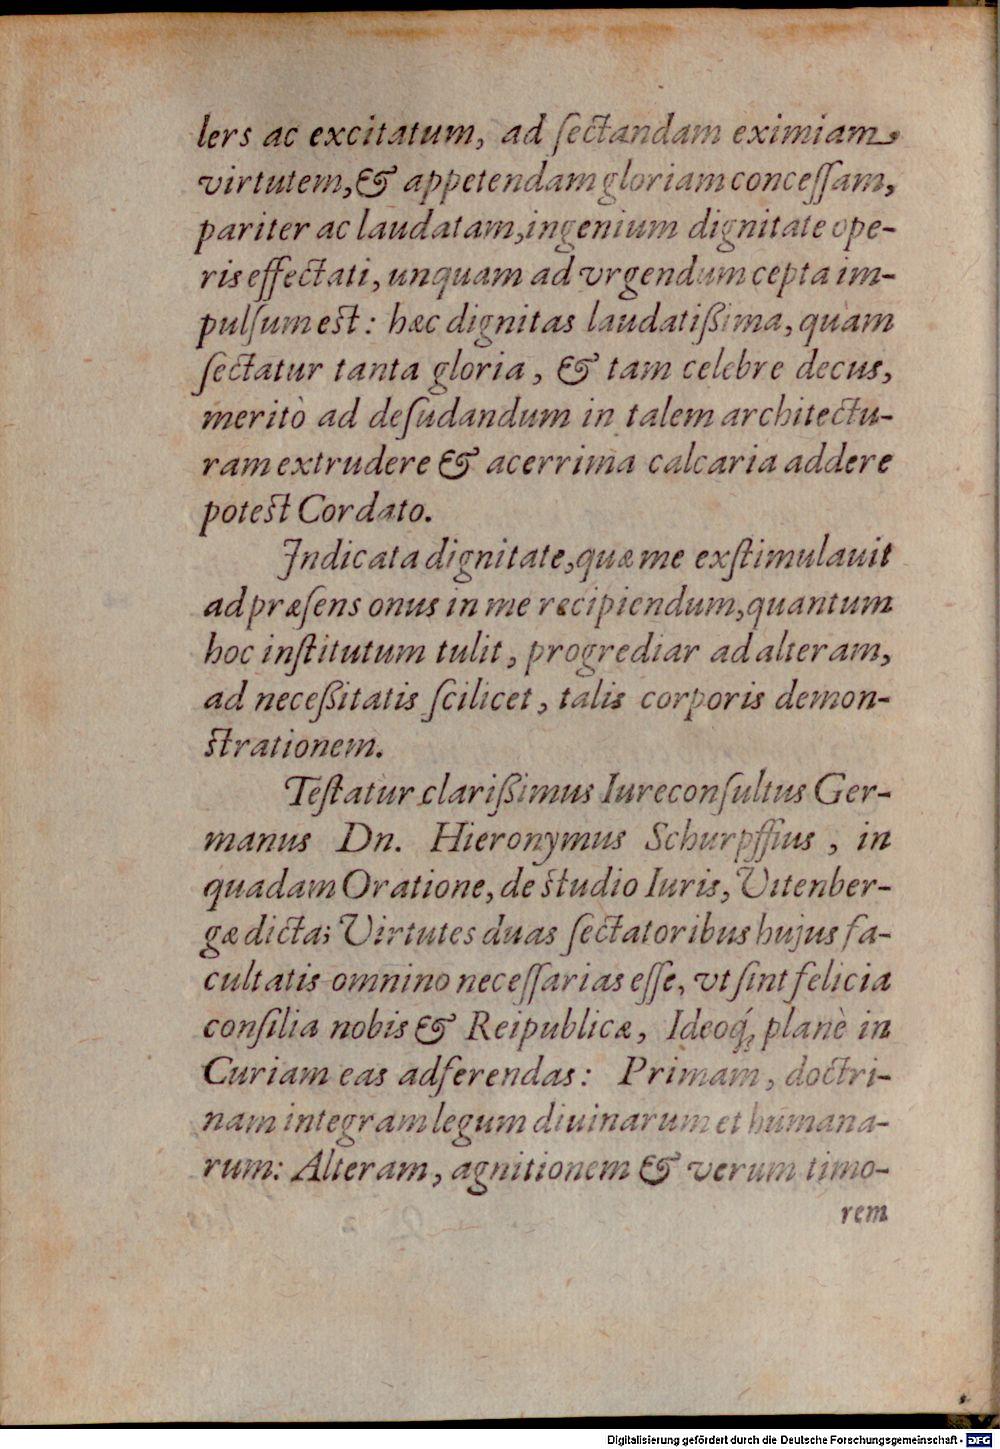 lers ac excitatum, ad ſectandam eximiam
virtutem, & appetendam gloriam conceſſam,
pariter ac laudatam, ingenium dignitate ope-
ris effectati, unquam ad vrgendum cepta im-
pulſum est: hæc dignitas laudatißima, quam
ſectatur tanta gloria, & tam celebre decus,
meritò ad deſudandum in talem architectu-
ram extrudere & acerrima calcaria addere
potest Cordato.
Indicata dignitate, quæ me exſtimulauit
ad præſens onus in me recipiendum, quantum
hoc inſtitutum tulit, progrediar ad alteram,
ad neceßitatis ſcilicet, talis corporis demon-
strationem.
Teſtatur clarißimus Iureconſultus Ger-
manus Dn. Hieronymus Schurpffius, in
quadam Oratione, de studio Iuris, Vitenber-
gæ dicta; Virtutes duas ſectatoribus hujus fa-
cultatis omnino neceſſarias eſſe, vt ſint felicia
conſilia nobis & Reipublicæ, Ideoq́; planè in
Curiam eas adferendas: Primam, doctri-
nam integram legum diuinarum et humana-
rum: Alteram, agnitionem & verum timo-
rem
Digitalisierung gefördert durch die Deutsche Forschungsgemeinschaft - DFG